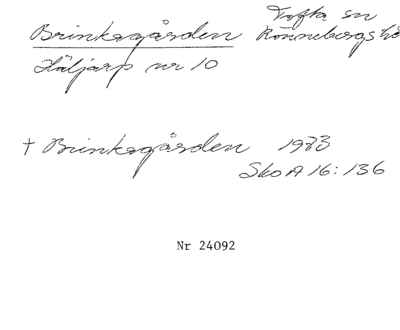 Brinksgården
Tofta sn
Rönnebergs hd
Häljarp nr 10
† Brinksgården 1933
Skorg 16:136
Nr 24092